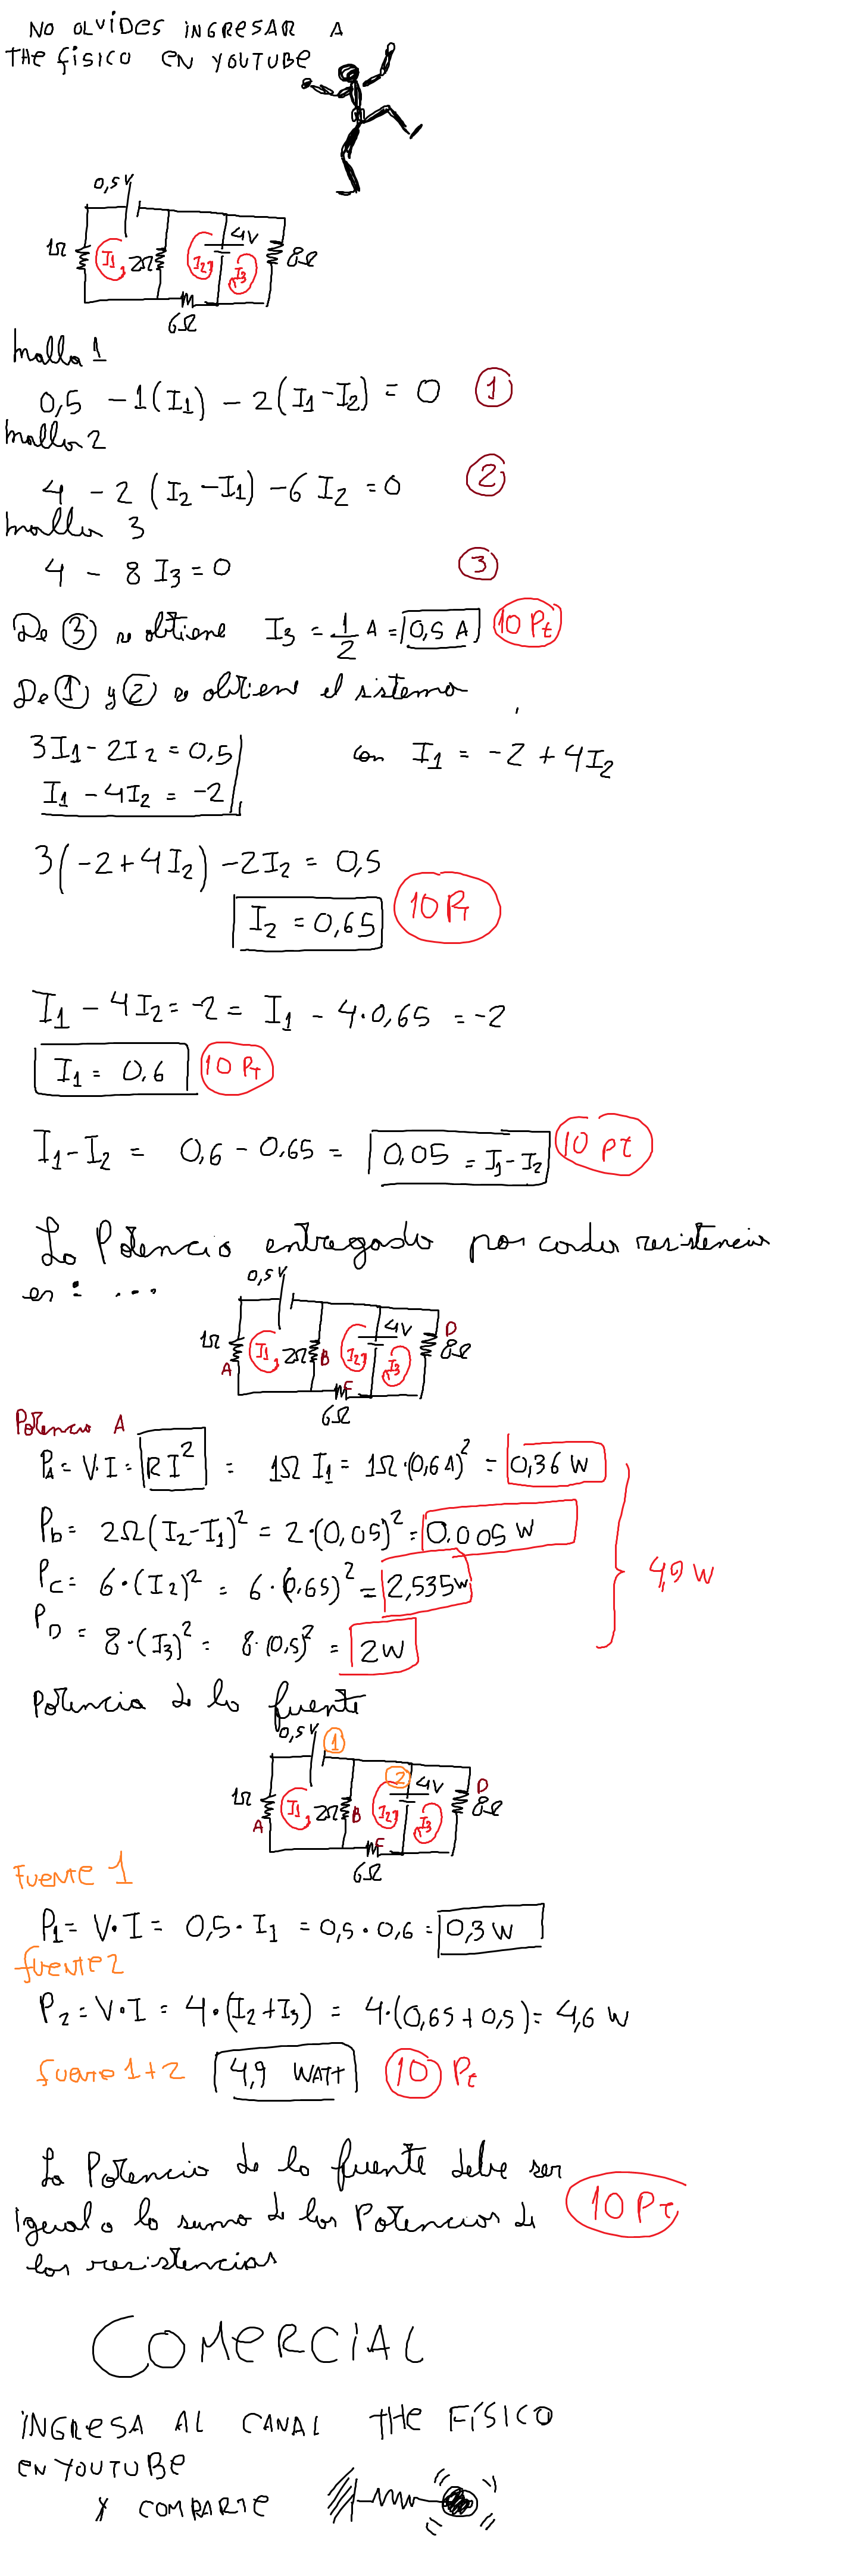 NO OLVIDES INGRESAR A
THE FISICO EN YOUTUBE
0,5V
1Ω I1 2Ω I2 4V I3 8Ω
6Ω
Malla 1
0,5 - 1(I1) - 2(I1 - I2) = 0 ①
Malla 2
4 - 2(I2 - I1) - 6 I2 = 0 ②
Malla 3
4 - 8 I3 = 0 ③
De ③ se obtiene I3 = 1/2 A = 0,5 A 10 Pt
De ① y ② se obtiene el sistema
3I1 - 2I2 = 0,5 con I1 = -2 + 4I2
I1 - 4I2 = -2
3(-2 + 4I2) - 2I2 = 0,5
I2 = 0,65 10 PT
I1 - 4I2 = -2 = I1 - 4·0,65 = -2
I1 = 0.6 10 PT
I1 - I2 = 0,6 - 0,65 = 0,05 = I1 - I2 10 pt
La Potencia entregada por cada resistencia
es : ...
0,5V
1Ω I1 2Ω B I2 4V I3 D 8Ω
A
6Ω
Potencia A
PA = V·I = R I² = 1Ω I1 = 1Ω·(0,6 A)² = 0,36 W
Pb = 2Ω(I2 - I1)² = 2·(0,05)² = 0.005 W
PC = 6·(I2)² = 6·(0.65)² = 2,535 W 4,9 W
PD = 8·(I3)² = 8·(0,5)² = 2 W
Potencia de la fuente
0,5V 1
1Ω I1 2Ω B I2 2 4V I3 D 8Ω
A
6Ω
FUENTE 1
P1 = V·I = 0,5·I1 = 0,5·0,6 = 0,3 W
fuente 2
P2 = V·I = 4·(I2 + I3) = 4·(0,65 + 0,5) = 4,6 W
fuente 1+2 4,9 WATT 10 Pt
La Potencia de la fuente debe ser
igual a la suma de las Potencias de 10 Pt
las resistencias
COMERCIAL
INGRESA AL CANAL THE FÍSICO
EN YOUTUBE
Y COMPARTE